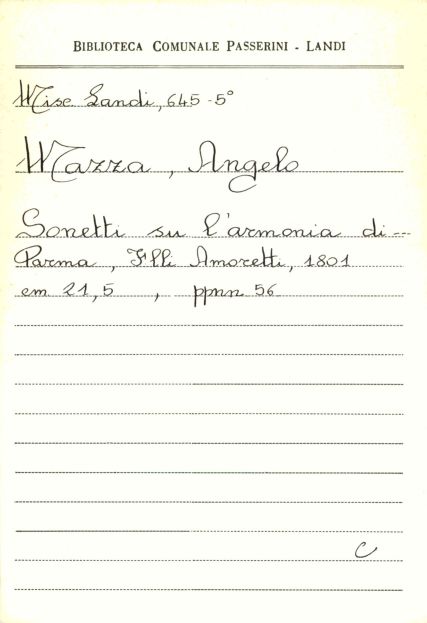 BIBLIOTECA COMUNALE PASSERINI - LANDI
Misc. Landi, 645 - 5°
Mazza, Angelo
Sonetti su l'armonia di --
Parma, Flli Amoretti, 1801
cm 21,5 , ppnn 56
C